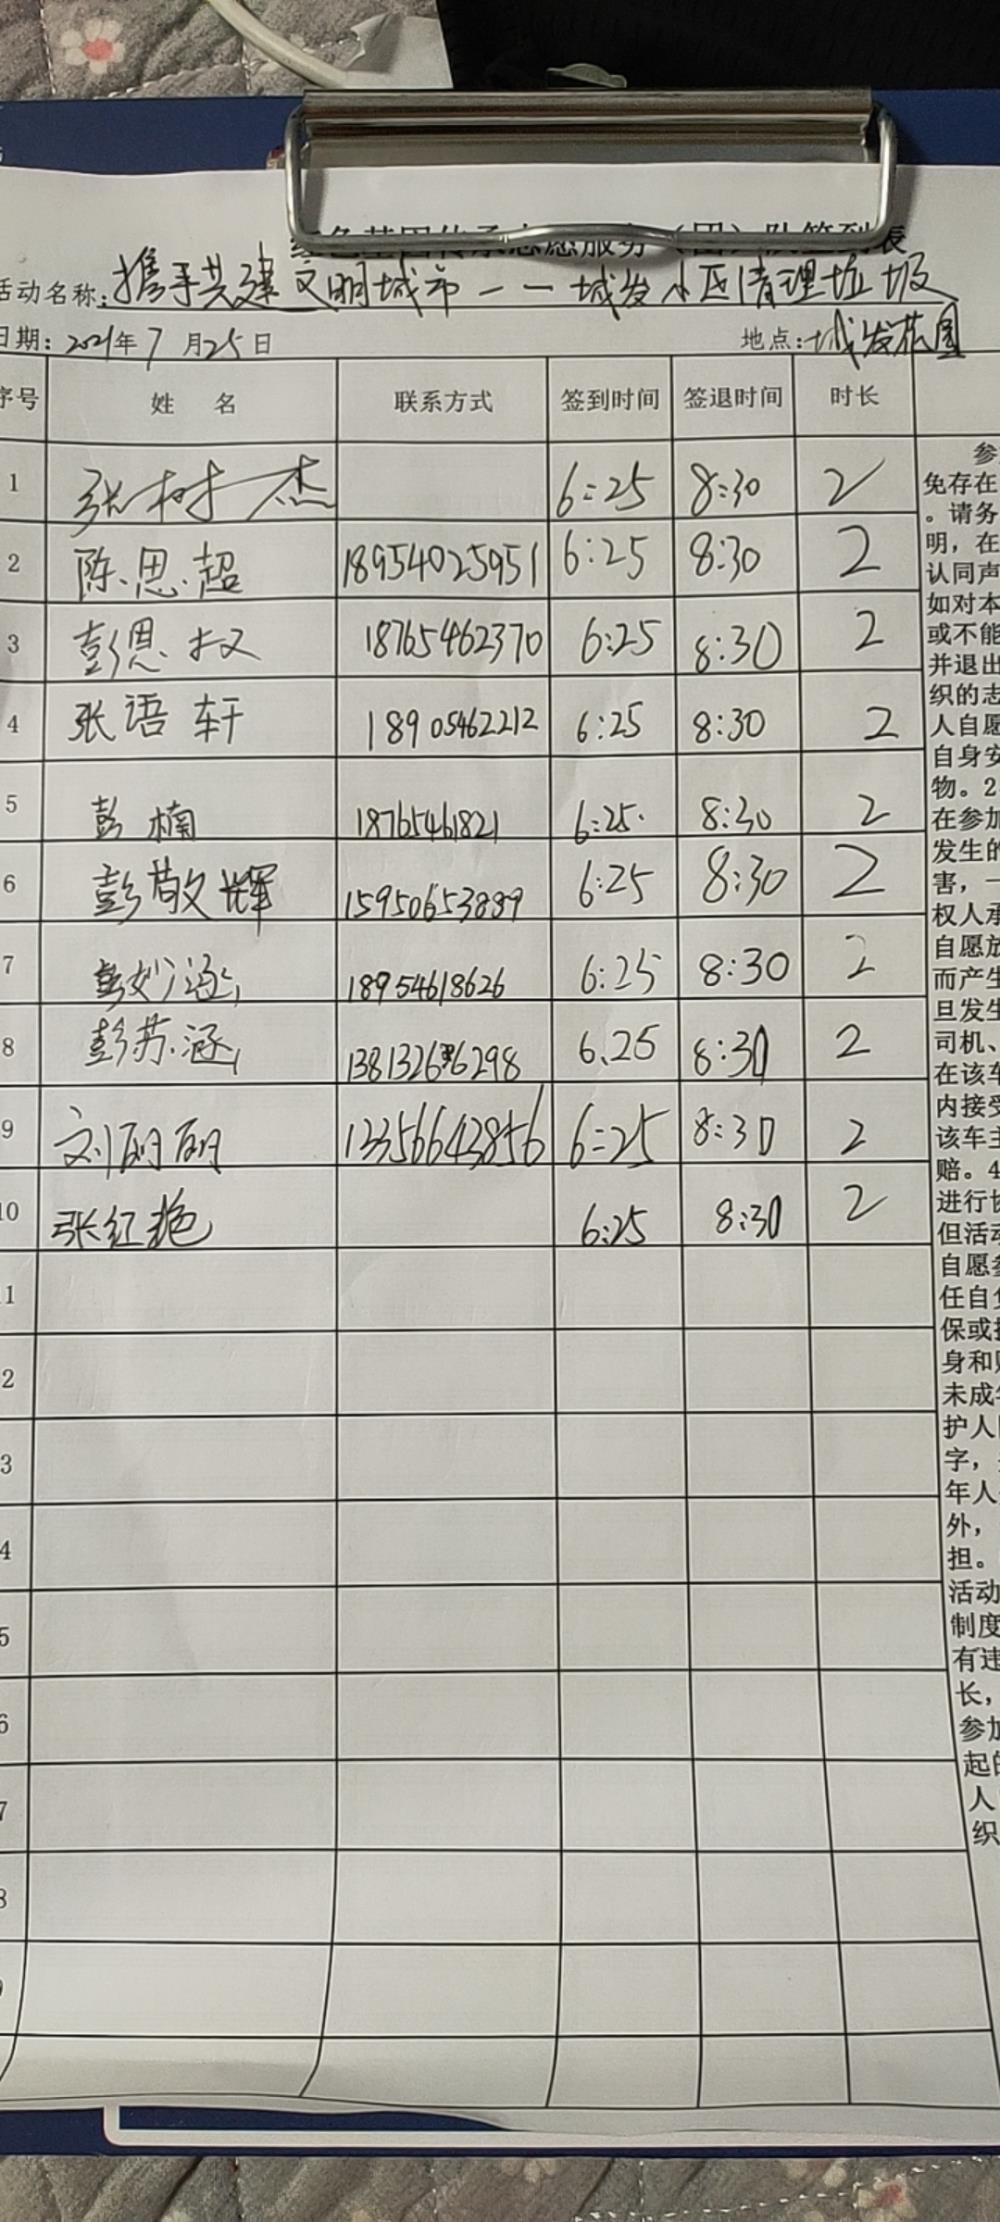 红色基因传承志愿服务（团）队签到表
活动名称：携手共建文明城市——城发小区清理垃圾
日期：2021年7月25日 地点：城发花园
序号 姓名 联系方式 签到时间 签退时间 时长
1 张树杰 6:25 8:30 2
2 陈思超 18954025951 6:25 8:30 2
3 彭恩权 18765462370 6:25 8:30 2
4 张语轩 18905462212 6:25 8:30 2
5 彭楠 18765461821 6:25 8:30 2
6 彭敬辉 15950653889 6:25 8:30 2
7 彭妙涵 18954618626 6:25 8:30 2
8 彭苏涵 6.25 8:30 2
9 刘丽丽 13356643856 6:25 8:30 2
10 张红艳 6:25 8:30 2
1
2
3
4
5
6
7
8
参
免存在
。请务
明，在
认同声
如对本
或不能
并退出
织的志
人自愿
自身安
物。2
在参加
发生的
害，一
权人承
自愿放
而产生
旦发生
司机、
在该车
内接受
该车主
赔。4
进行协
但活动
自愿参
任自负
保或投
身和财
未成年
护人
字，
年人
外，
担。
活动
制度
有违
长，
参加
起的
人
织